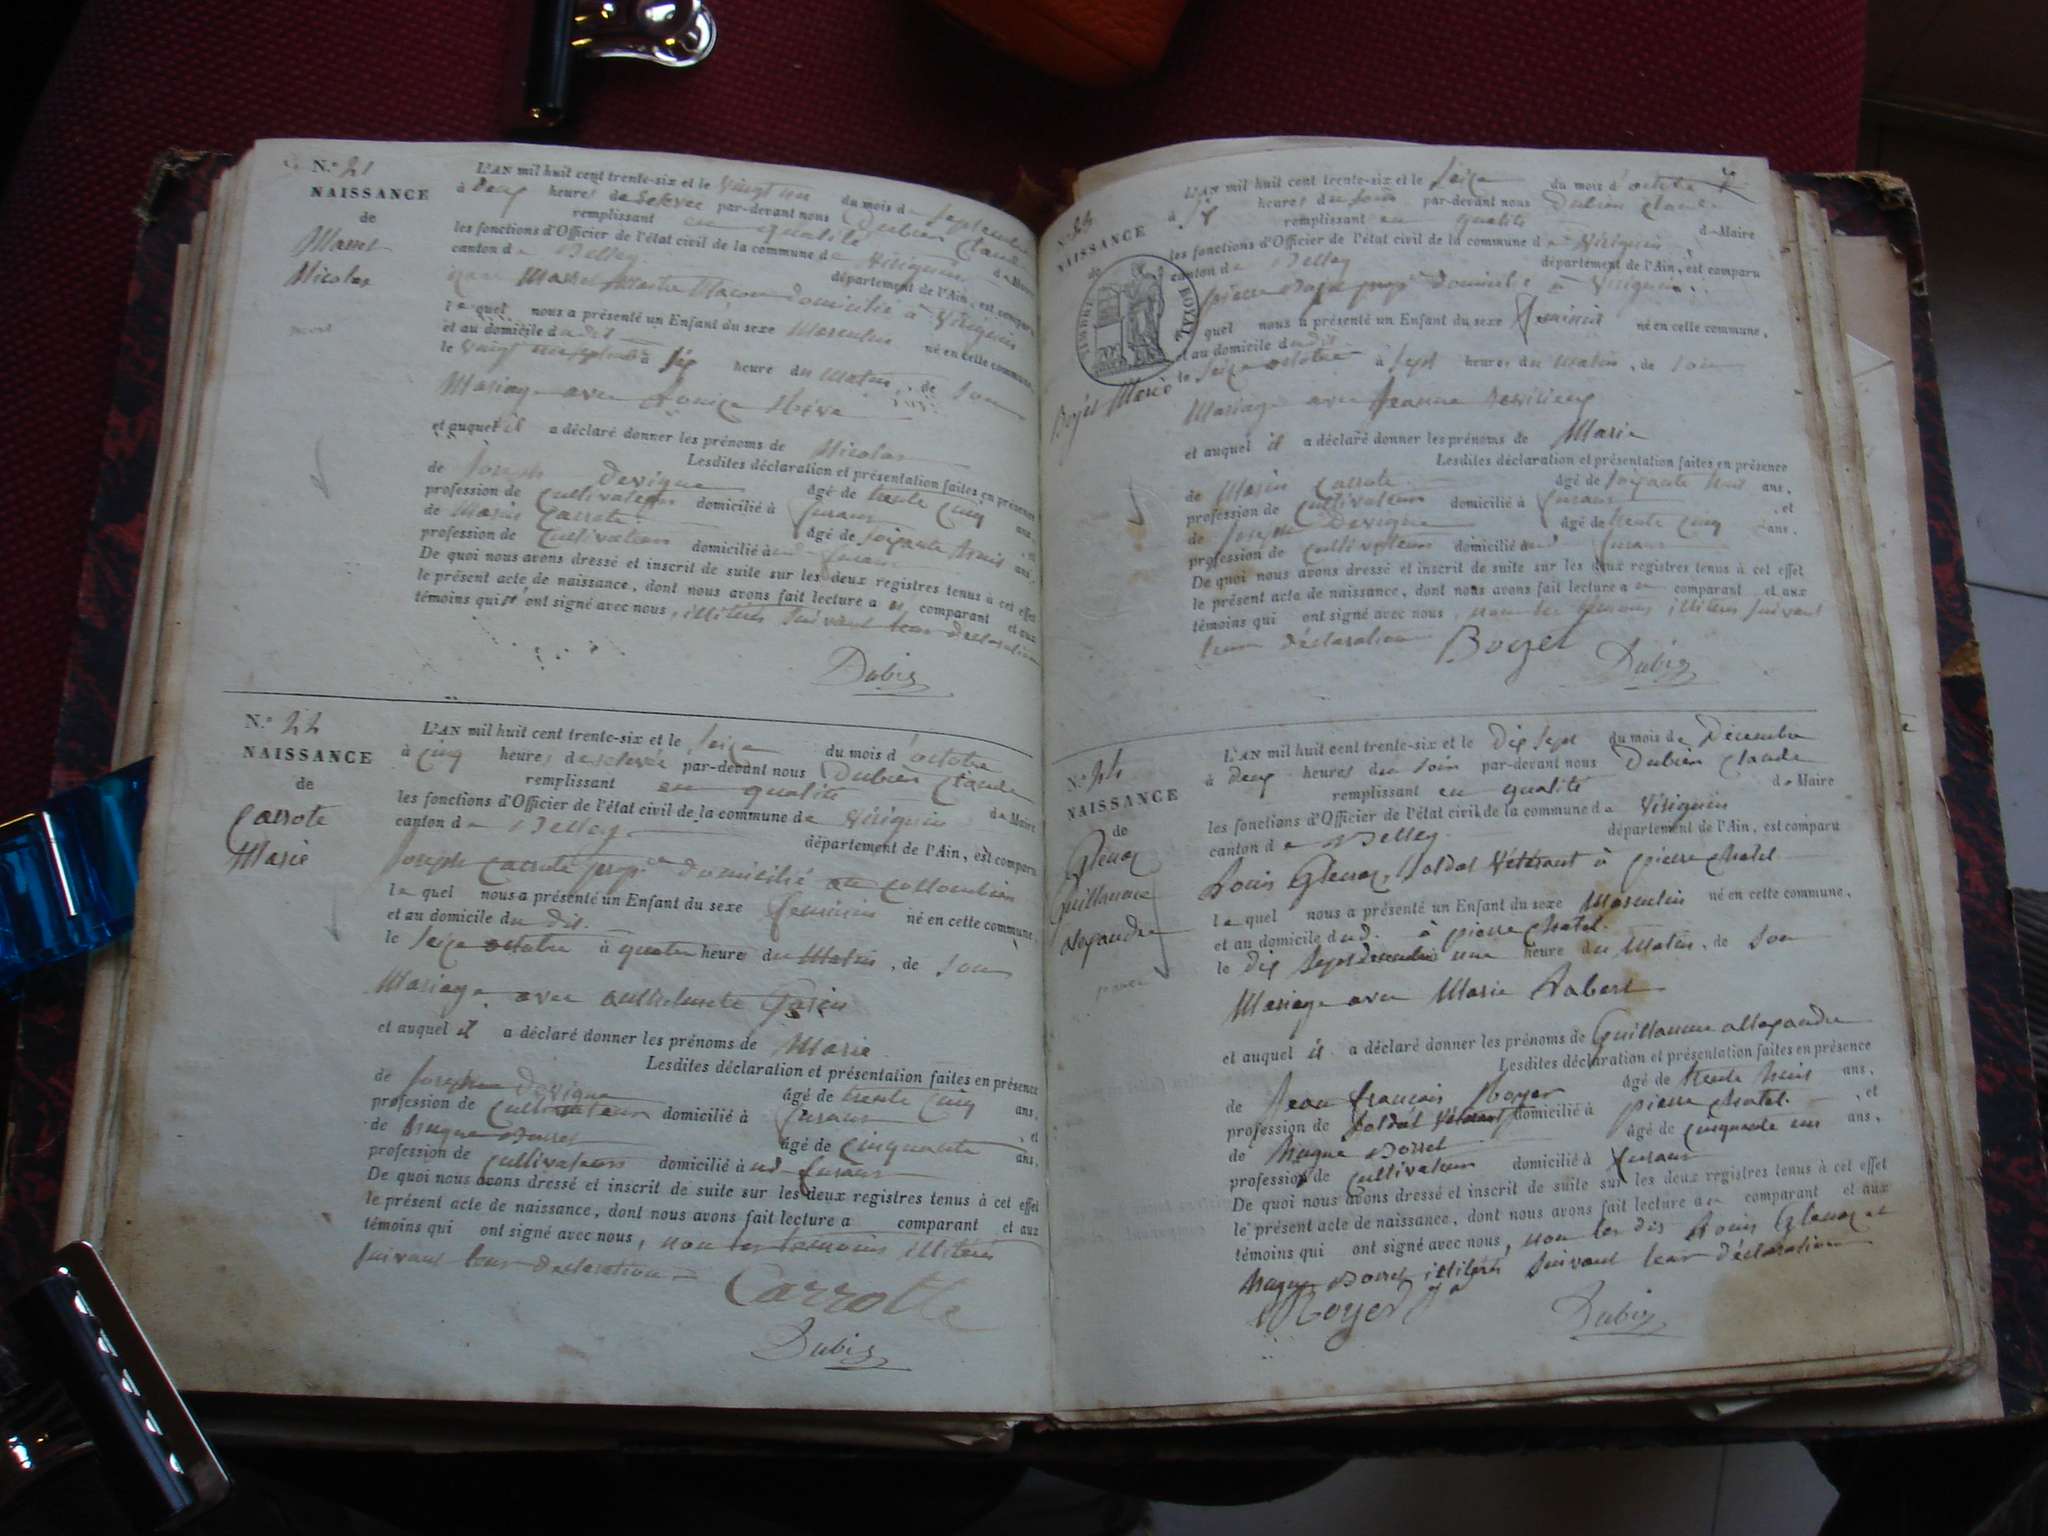 N.° 21
NAISSANCE
de
Massel
Nicolas
L'AN mil huit cent trente-six et le vingt un du mois d septembre
à deux heures de relevée par-devant nous Dubien Claude
remplissant en qualité d e Maire
les fonctions d'Officier de l'état civil de la commune d e Virignin
canton d e Belley département de l'Ain, est comparu
Massel domicilié à Virignin
le quel nous a présenté un Enfant du sexe Masculin né en cette commune,
et au domicile du dit
le vingt un septembre à six heure du matin, de son
Mariage avec Louise
et auquel il a déclaré donner les prénoms de Nicolas
Lesdites déclaration et présentation faites en présence
de Joseph Devigne âgé de trente cinq ans,
profession de cultivateur domicilié à furans et
de Marin Carrote âgé de soixante huit ans,
profession de cultivateur domicilié à ud furans
De quoi nous avons dressé et inscrit de suite sur les deux registres tenus à cet effet
le présent acte de naissance, dont nous avons fait lecture a u comparant et aux
témoins qui n'ont signé avec nous, illitérés suivant leur declaration
Dubien
N.° 22
NAISSANCE
de
Carrote
Marie
L'AN mil huit cent trente-six et le seize du mois d'octobre
à cinq heures de relevée par-devant nous Dubien Claude
remplissant en qualité d e Maire
les fonctions d'Officier de l'état civil de la commune d e Virignin
canton d e Belley département de l'Ain, est comparu
Joseph Carrote prop.re domicilié au collombier
le quel nous a présenté un Enfant du sexe feminin né en cette commune,
et au domicile du dit
le seize octobre à quatre heures du Matin, de son
Mariage avec anthelmette
et auquel il a déclaré donner les prénoms de Marie
Lesdites déclaration et présentation faites en présence
de Joseph Devigne âgé de trente cinq ans,
profession de cultivateur domicilié à furans et
de hugue Borret âgé de cinquante ans,
profession de cultivateur domicilié à ud furans
De quoi nous avons dressé et inscrit de suite sur les deux registres tenus à cet effet
le présent acte de naissance, dont nous avons fait lecture a comparant et aux
témoins qui ont signé avec nous, non les temoins illitérés
suivant leur declaration
Carrotte
Dubien
N.° 23
NAISSANCE
de
Bojet Marie
TIMBRE ROYAL
L'AN mil huit cent trente-six et le seize du mois d'octobre
à six heures du soir par-devant nous Dubien Claude
remplissant en qualité d e Maire
les fonctions d'Officier de l'état civil de la commune d e Virignin
canton d e Belley département de l'Ain, est comparu
pierre prop.re domicilié à Virignin
quel nous a présenté un Enfant du sexe feminin né en cette commune,
et au domicile du dit
le seize octobre à sept heures du matin, de son
Mariage avec Jeanne
et auquel il a déclaré donner les prénoms de Marie
Lesdites déclaration et présentation faites en présence
de Marin Carrote âgé de soixante huit ans,
profession de cultivateur domicilié à furans et
de Joseph Devigne âgé de trente cinq ans,
profession de cultivateur domicilié à ud furans
De quoi nous avons dressé et inscrit de suite sur les deux registres tenus à cet effet
le présent acte de naissance, dont nous avons fait lecture a u comparant et aux
témoins qui ont signé avec nous, non les temoins illitérés suivant
leur déclaration
Boyet
Dubien
N.° 24
NAISSANCE
de
Glenaz
Guillaume
alexandre
L'AN mil huit cent trente-six et le dix sept du mois d e Décembre
à deux heures du soir par-devant nous Dubien Claude
remplissant en qualité d e Maire
les fonctions d'Officier de l'état civil de la commune d e Virignin
canton d e Belley département de l'Ain, est comparu
Louis Glenaz, soldat vétérant à pierre chatel
le quel nous a présenté un Enfant du sexe Masculin né en cette commune,
et au domicile d ud. à pierre chatel
le dix sept decembre une heure du Matin, de son
Mariage avec Marie Rabert
et auquel il a déclaré donner les prénoms de Guillaume allexandre
Lesdites déclaration et présentation faites en présence
de Jean françois Royer âgé de trente huit ans,
profession de soldat vétérant domicilié à pierre chatel et
de hugue Borret âgé de cinquante un ans,
profession de cultivateur domicilié à furans
De quoi nous avons dressé et inscrit de suite sur les deux registres tenus à cet effet
le présent acte de naissance, dont nous avons fait lecture a u comparant et aux
témoins qui ont signé avec nous, non les dis Louis Glenaz et
hugue Borret illitérés suivant leur déclaration
Royer
Dubien